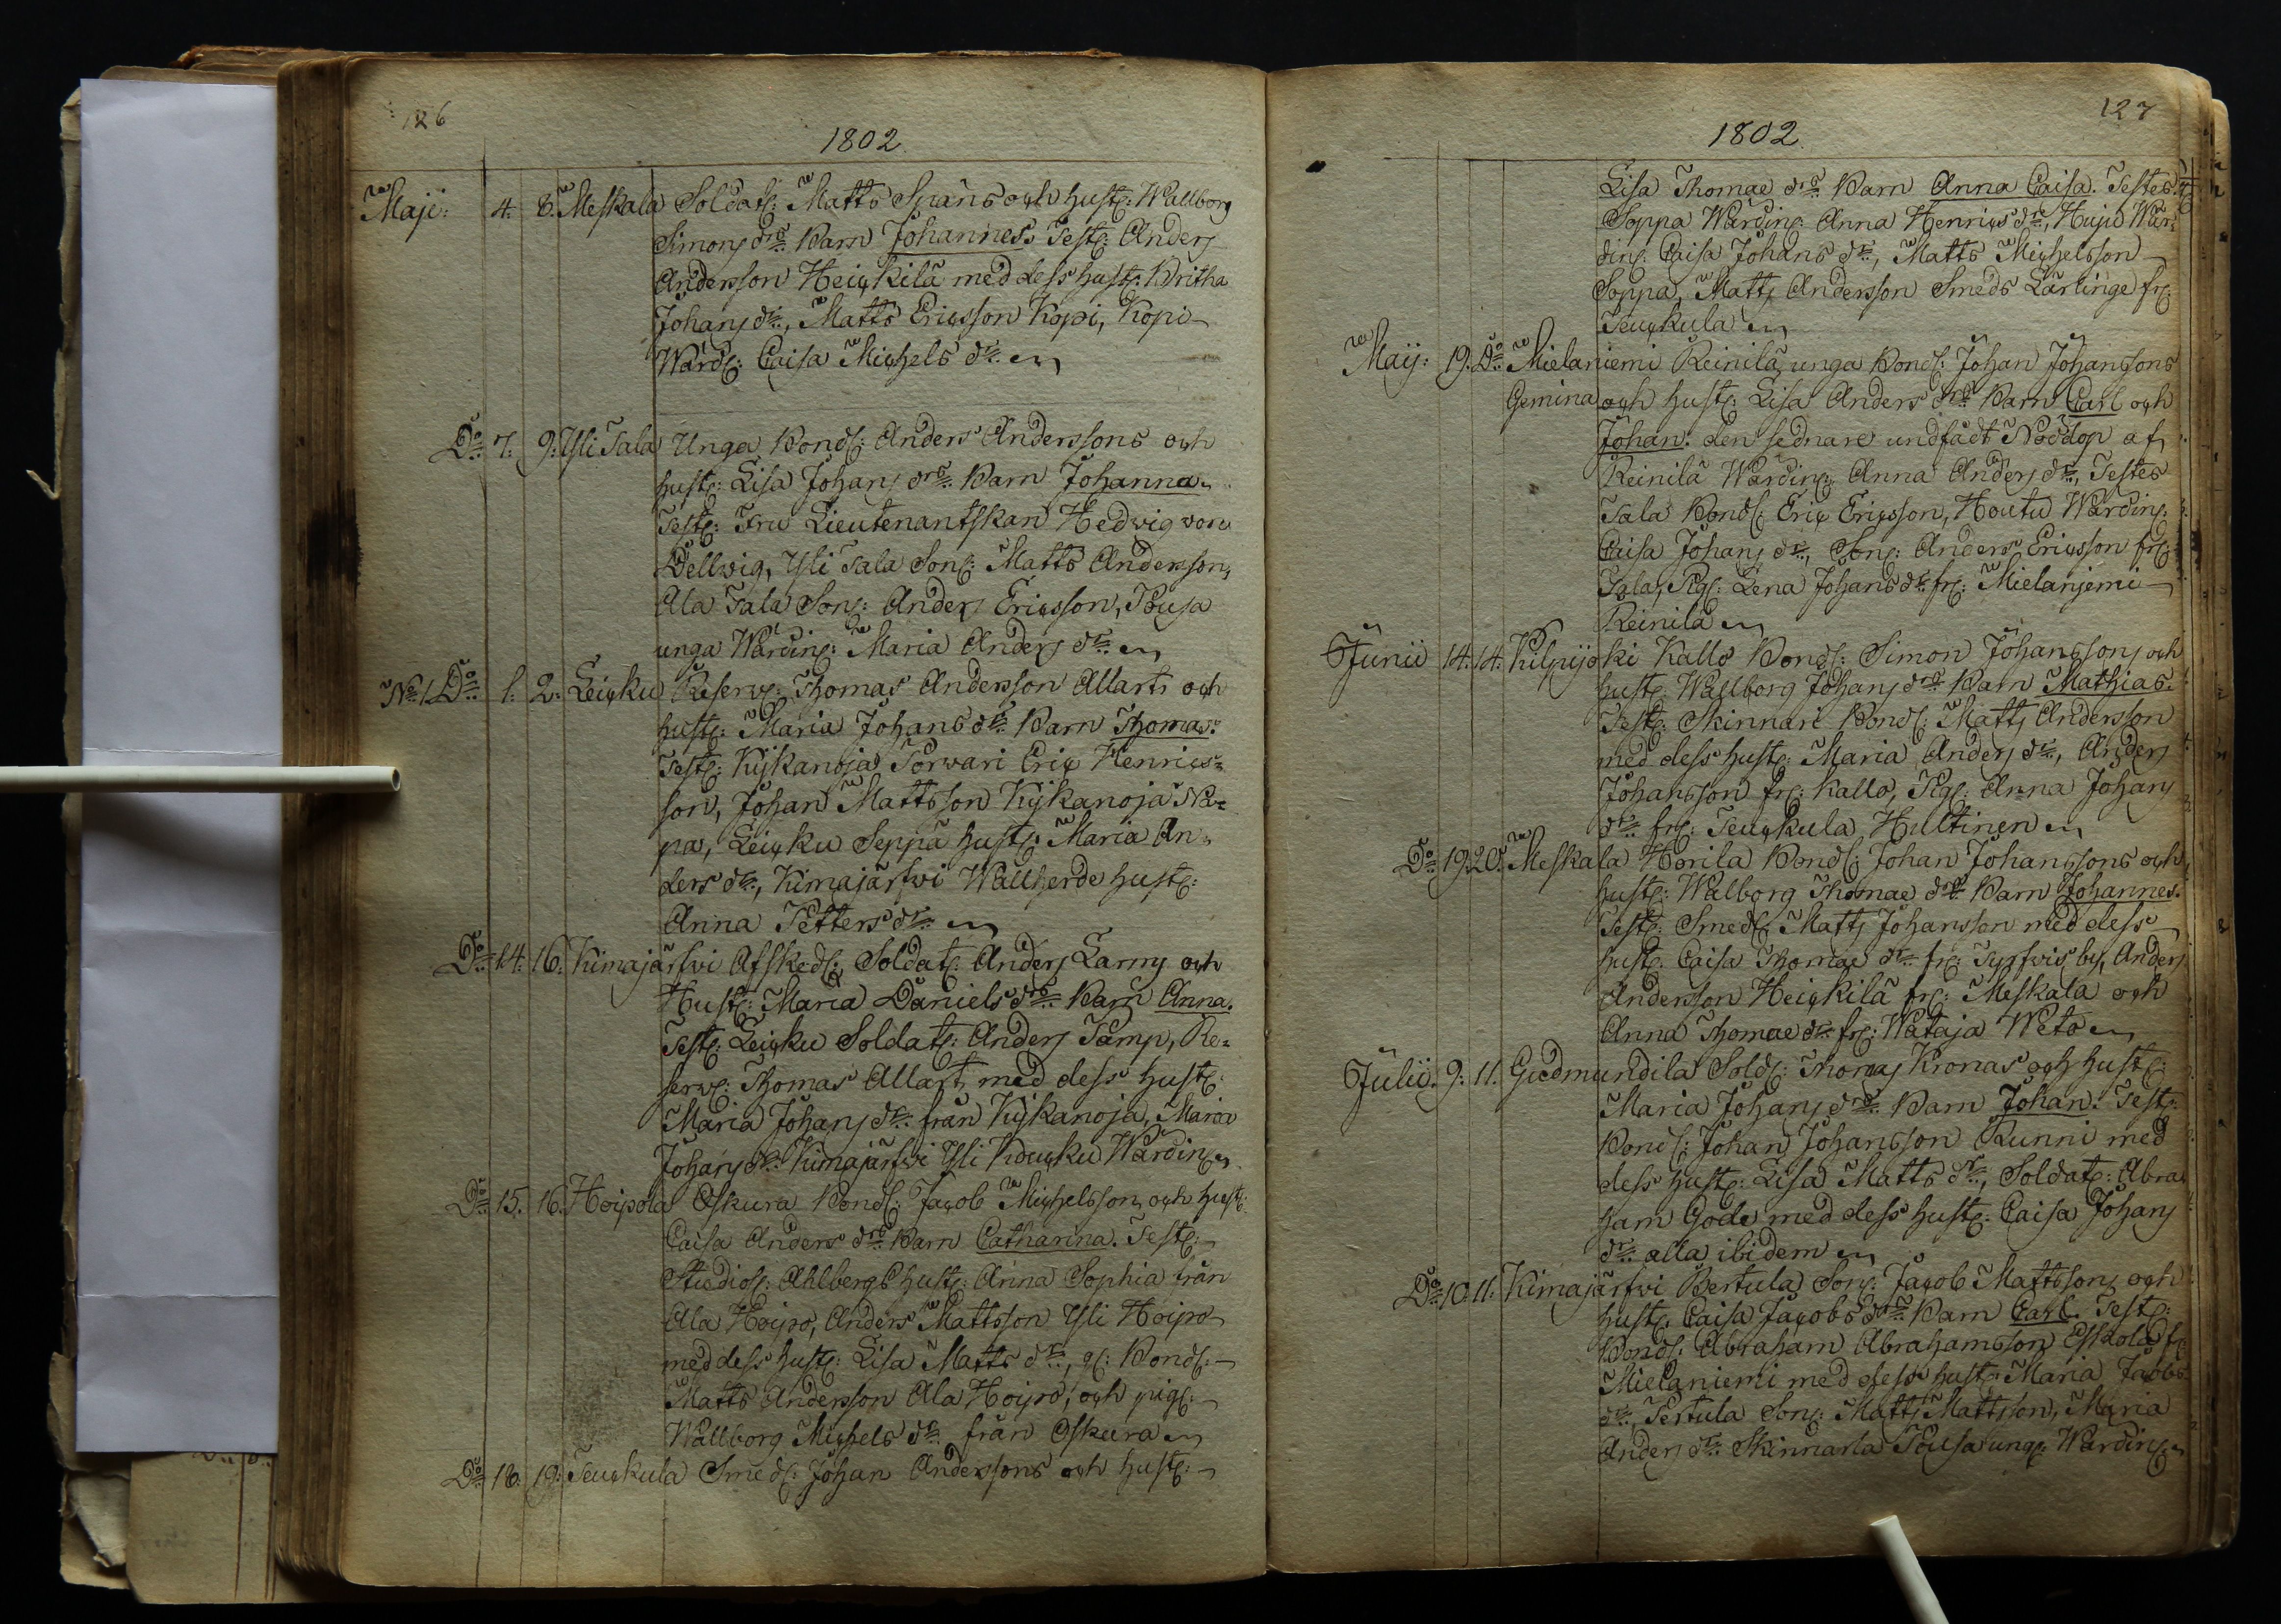 126
1802
Maji: 4. 8. Meskala Soldat: Matts Spans och hust: Wallborg
Simons drs Barn Johannes. Test: Anders
Andersson Heickilä med dess hust: Britha
Johans dr, Matts Ericsson Kopi, Kopi
Wärd: Caisa Michels dr
Do 7. 9. Yli Sala Unga Bond: Anders Anderssons och
hust: Lisa Johans drs Barn Johanna.
Test: Fru Lieutenantskan Hedwig von
Dellwig, Yli Sala Son: Matts Andersson,
Ala Sala Son: Anders Ericsson, Pousa
unga Wärdin: Maria Anders dr
No 1. Do 1. 2. Leicku Reserv: Thomas Andersson Allarts och
hust: Maria Johans drs Barn Thomas.
Test: Kijkanoja Torwari Eric Henrics=
son, Johan Mattsson Kijkanoja Pa=
pa, Leicku Seppä hust: Maria An=
ders dr, Kimajärfwi Wallherde hust:
Anna Petters dr
Do 14. 16. Kimajärfwi Afsked: Soldat: Anders Larms och
Hust: Maria Daniels drs Barn Anna.
Test: Leicku Soldat: Anders Pamp, Re=
serv: Thomas Allart med dess hust:
Maria Johans dr från Kijkanoja, Maria
Johans dr Kimajärfwi Yli Koucku Wärdin
Do 15. 16. Hoipola Oskura Bond: Jacob Michelssons och hust:
Caisa Anders drs Barn Catharina. Test:
Studios: Ahlbergs hust: Anna Sophia från
Ala Hoipo, Anders Mattsson Yli Hoipo
med dess hust: Lisa Matts dr, g: Bond:
Matts Andersson Ala Hoipo, och pig:
Wallborg Michels dr från Oskura
Do 18. 19. Teuckula Smed: Johan Anderssons och hust:
127
1802
Lisa Thomae drs Barn Anna Caisa. Testes
Soppa Wärdin: Anna Henrics dr, Huju Wär=
din: Caisa Johans dr, Matts Michelsson
Soppa, Matts Andersson Smeds Lärlinge fr:
Teuckula
Maij: 19. Do Mielaniemi Reinilä unga Bond: Johan Johanssons
Gemina och hust: Lisa Anders drs Barn Carl och
Johan. den sednare undfådt Nöddop af
Reinilä Wärdin: Anna Anders dr, Testes
Sala Bond: Eric Ericsson, Houtu Wärdin:
Caisa Johans dr, Son: Anders Ericsson fr:
Sala, Pig: Lena Johans dr fr: Mielaniemi
Reinilä
Junii 14. 14. Kilpijoki Kallo Bond: Simon Johanssons och
hust: Wallborg Johans drs Barn Mathias.
Test: Skinnari Bond: Matts Andersson
med dess hust: Maria Anders dr, Anders
Johansson fr: Kallo, Pig: Anna Johans
dr fr: Teuckula Hultinen
Do 19. 20. Meskala Horila Bond: Johan Johanssons och
hust: Walborg Thomae drs Barn Johannes.
Test: Smed: Matts Johansson med dess
hust: Caisa Thomae dr fr: Tyrfwis by, Anders
Andersson Heickilä fr: Meskala och
Anna Thomae dr fr: Wataja Weto
Julii. 9. 11. Gudmundila Sold: Thomas Kronas och hust:
Maria Johans drs Barn Johan. Test:
Bond: Johan Johansson Runni med
dess hust: Lisa Matts dr, Soldat: Abra
ham Gode med dess hust: Caisa Johans
dr alla ibidem
Do 10. 11. Kimajärfwi Bertula Son: Jacob Mattssons och
hust: Caisa Jacobs drs Barn Carl. Test:
Bond: Abraham Abrahamsson Eskola fr
Mielaniemi med dess hust: Maria Jacobs
dr, Pertula Son: Matts Mattsson, Maria
Anders dr Skinnarla Pousa unga Wärdin